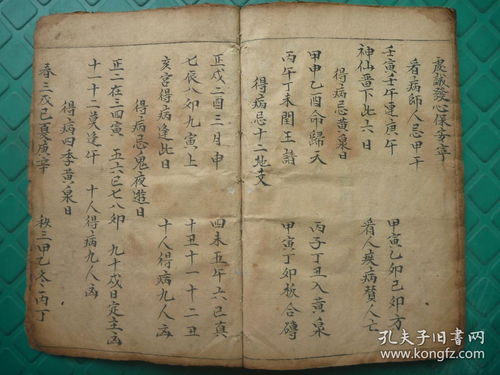 虔誠發心保安寧
看病師人忌甲午
壬寅壬午連庚午 甲寅乙卯己卯方
神仙留下此六日 看人疾病賛人亡
得病忌黄泉日
甲申乙酉命歸天 丙子丁丑入黄泉
丙午丁未閻王請 甲寅丁卯板合磚
得病忌十二地支
正戌二酉三月申 四未五午六巳真
七辰八卯九寅上 十丑十一十二丑
亥宫得病逢此日 十人得病九人凶
得病忌鬼夜遊日
正二在三四寅 五六巳七八卯 九十戌日定主凶
十一十二莫逢午 十人得病九人凶
得病四季黄泉日
春三戊巳夏庚辛 秋三甲乙冬丙丁
孔夫子旧書网
www.kongfz.com